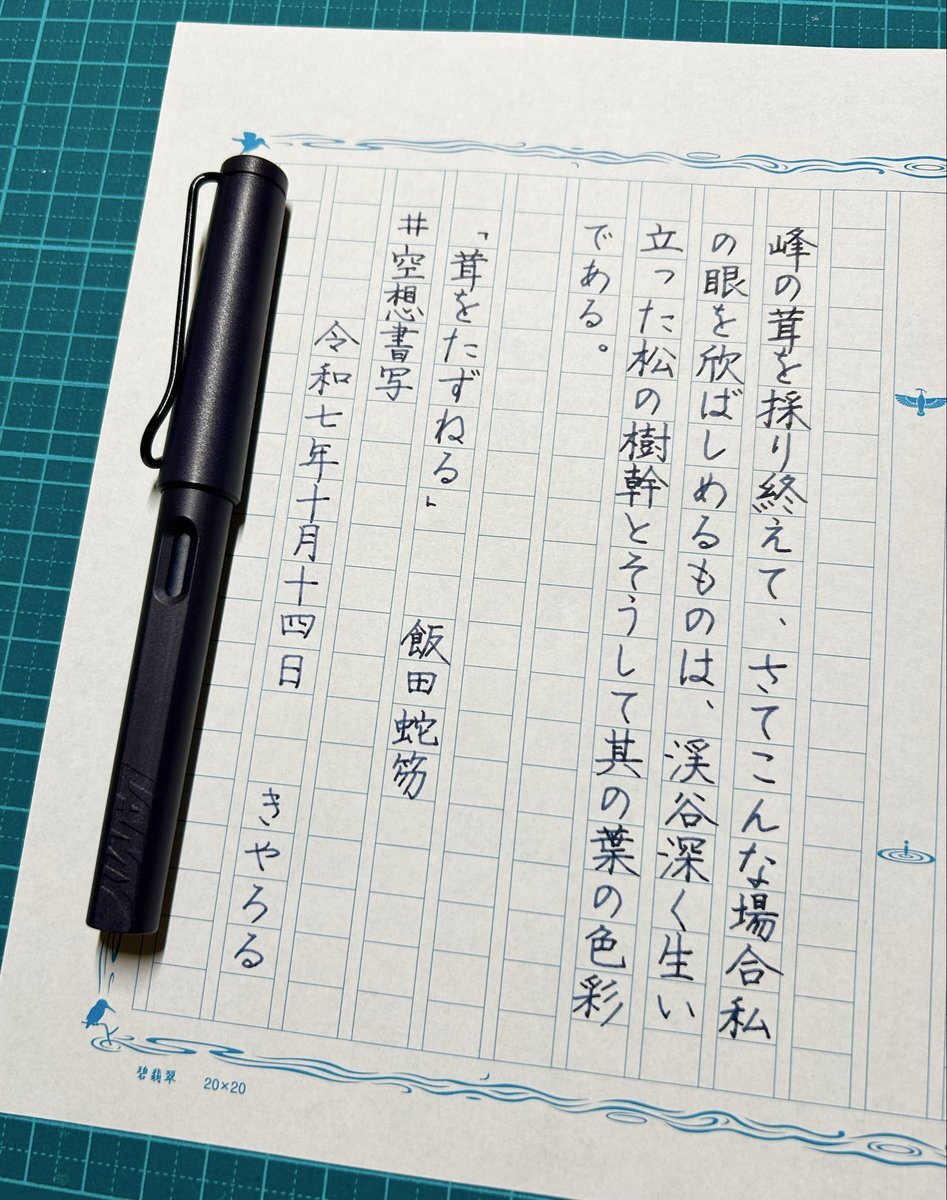 峰の茸を採り終えて、さてこんな場合私
の眼を欣ばしめるものは、渓谷深く生い
立った松の樹幹とそうして其の葉の色彩
である。
「茸をたずねる」
飯田蛇笏
#空想書写
令和七年十月十四日
きやろる
碧翡翠 20×20
LAMY